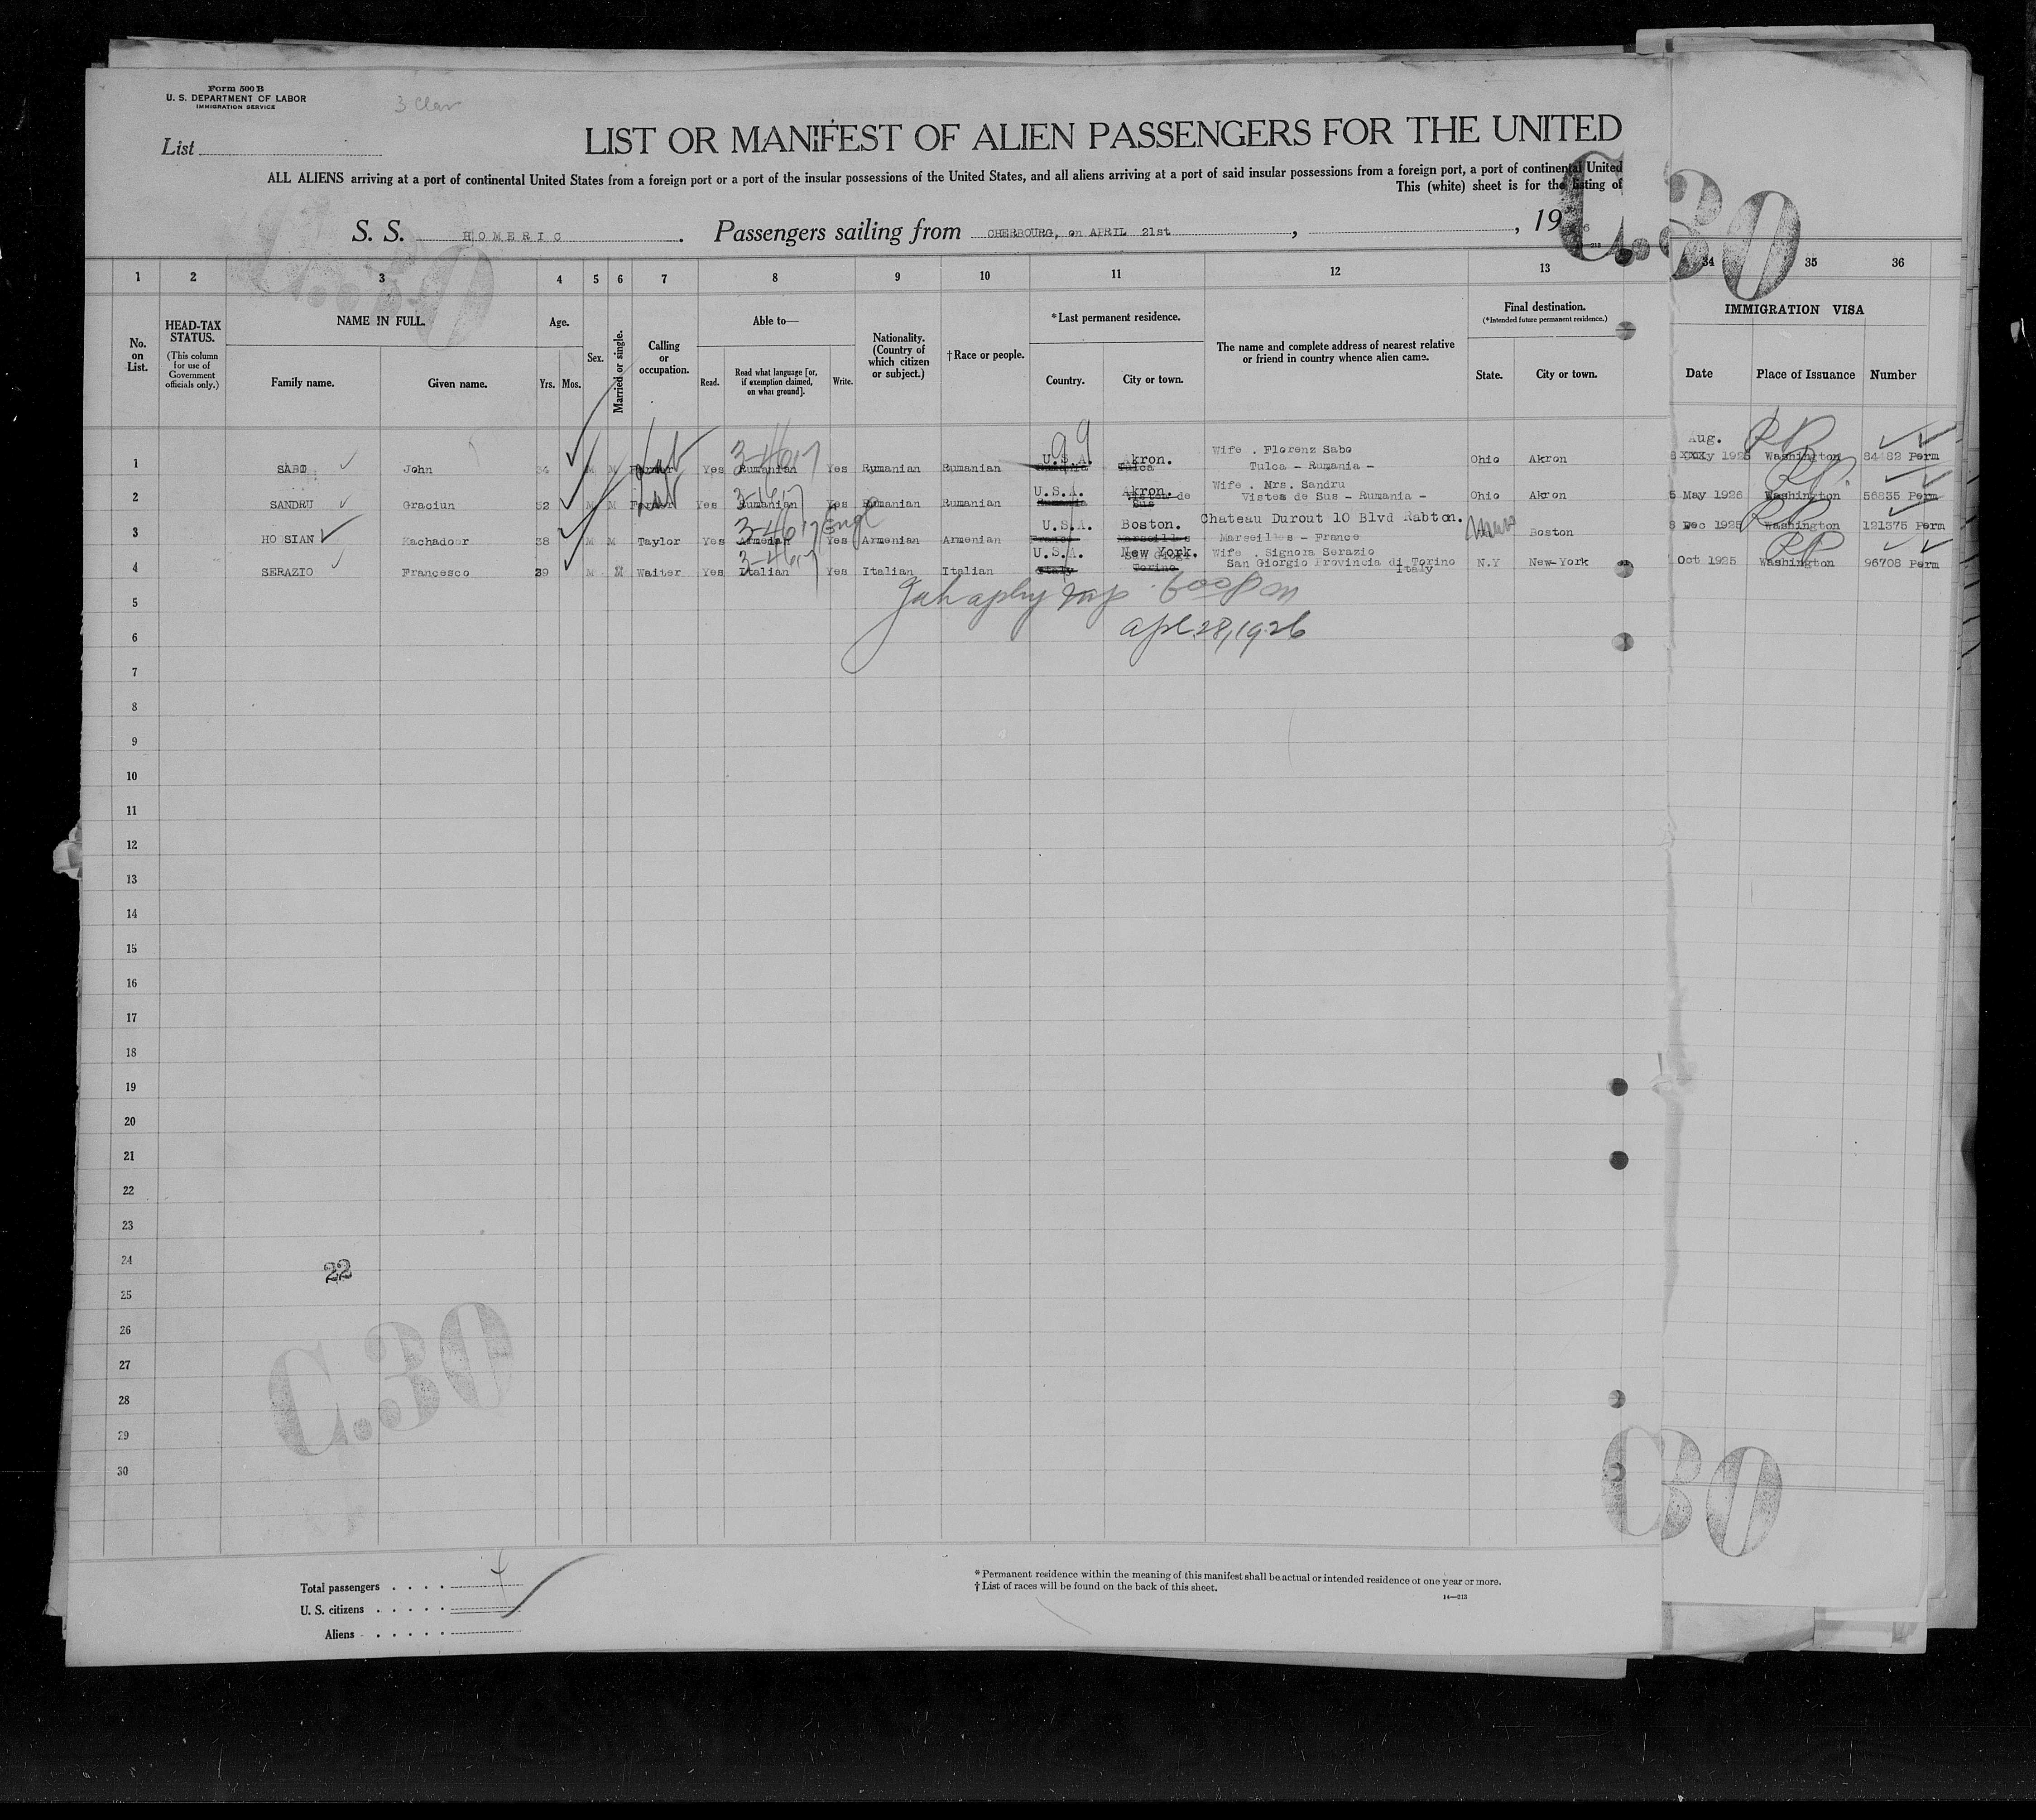 Form 500 B
U. S. DEPARTMENT OF LABOR
IMMIGRATION SERVICE
3 Class
List
LIST OR MANIFEST OF ALIEN PASSENGERS FOR THE UNITED
ALL ALIENS arriving at a port of continental United States from a foreign port or a port of the insular possessions of the United States, and all aliens arriving at a port of said insular possessions from a foreign port, a port of continental United
This (white) sheet is for the listing of
C.30
S. S. HOMERIC. Passengers sailing from CHERBOURG, on APRIL 21st, , 19
1 2 3 4 5 6 7 8 9 10 11 12 13 34 35 36
No. on List.
HEAD-TAX STATUS.
(This column for use of Government officials only.)
NAME IN FULL.
Family name. Given name.
Age.
Yrs. Mos.
Sex.
Married or single.
Calling or occupation.
Able to—
Read. Read what language [or, if exemption claimed, on what ground]. Write.
Nationality. (Country of which citizen or subject.)
† Race or people.
* Last permanent residence.
Country. City or town.
The name and complete address of nearest relative or friend in country whence alien came.
Final destination.
(* Intended future permanent residence.)
State. City or town.
IMMIGRATION VISA
Date Place of Issuance Number
1 SABO John 34 M M Yes Rumanian Yes Rumanian Rumanian U.S.A. Akron. Tulca Wife . Florenz Sabo Tulca - Rumania - Ohio Akron Aug. 1925 Washington 84482 Perm
2 SANDRU Graciun 52 M M Yes Rumanian Yes Rumanian Rumanian U.S.A. Akron. Wife . Mrs. Sandru Vistes de Sus - Rumania - Ohio Akron 5 May 1926 Washington 56835 Perm
3 HOSIAN Kachadoor 38 M M Taylor Yes Armenian Engl Yes Armenian Armenian U.S.A. Boston. Marseilles Chateau Durout 10 Blvd Rabton. Marseilles - France Mass Boston 8 Dec 1925 Washington 121375 Perm
4 SERAZIO Francesco 39 M M Waiter Yes Italian Yes Italian Italian U.S.A. Italy New York. Torino Wife . Signora Serazio San Giorgio Provincia di Torino Italy N.Y New-York Oct 1925 Washington 96708 Perm
5
6
Apl 28, 1926
7
8
9
10
11
12
13
14
15
16
17
18
19
20
21
22
23
24
22
25
26
27
28
29
30
C.30
C30
Total passengers . . . . 4
U. S. citizens . . . . .
Aliens . . . . . .
* Permanent residence within the meaning of this manifest shall be actual or intended residence of one year or more.
† List of races will be found on the back of this sheet.
14—213